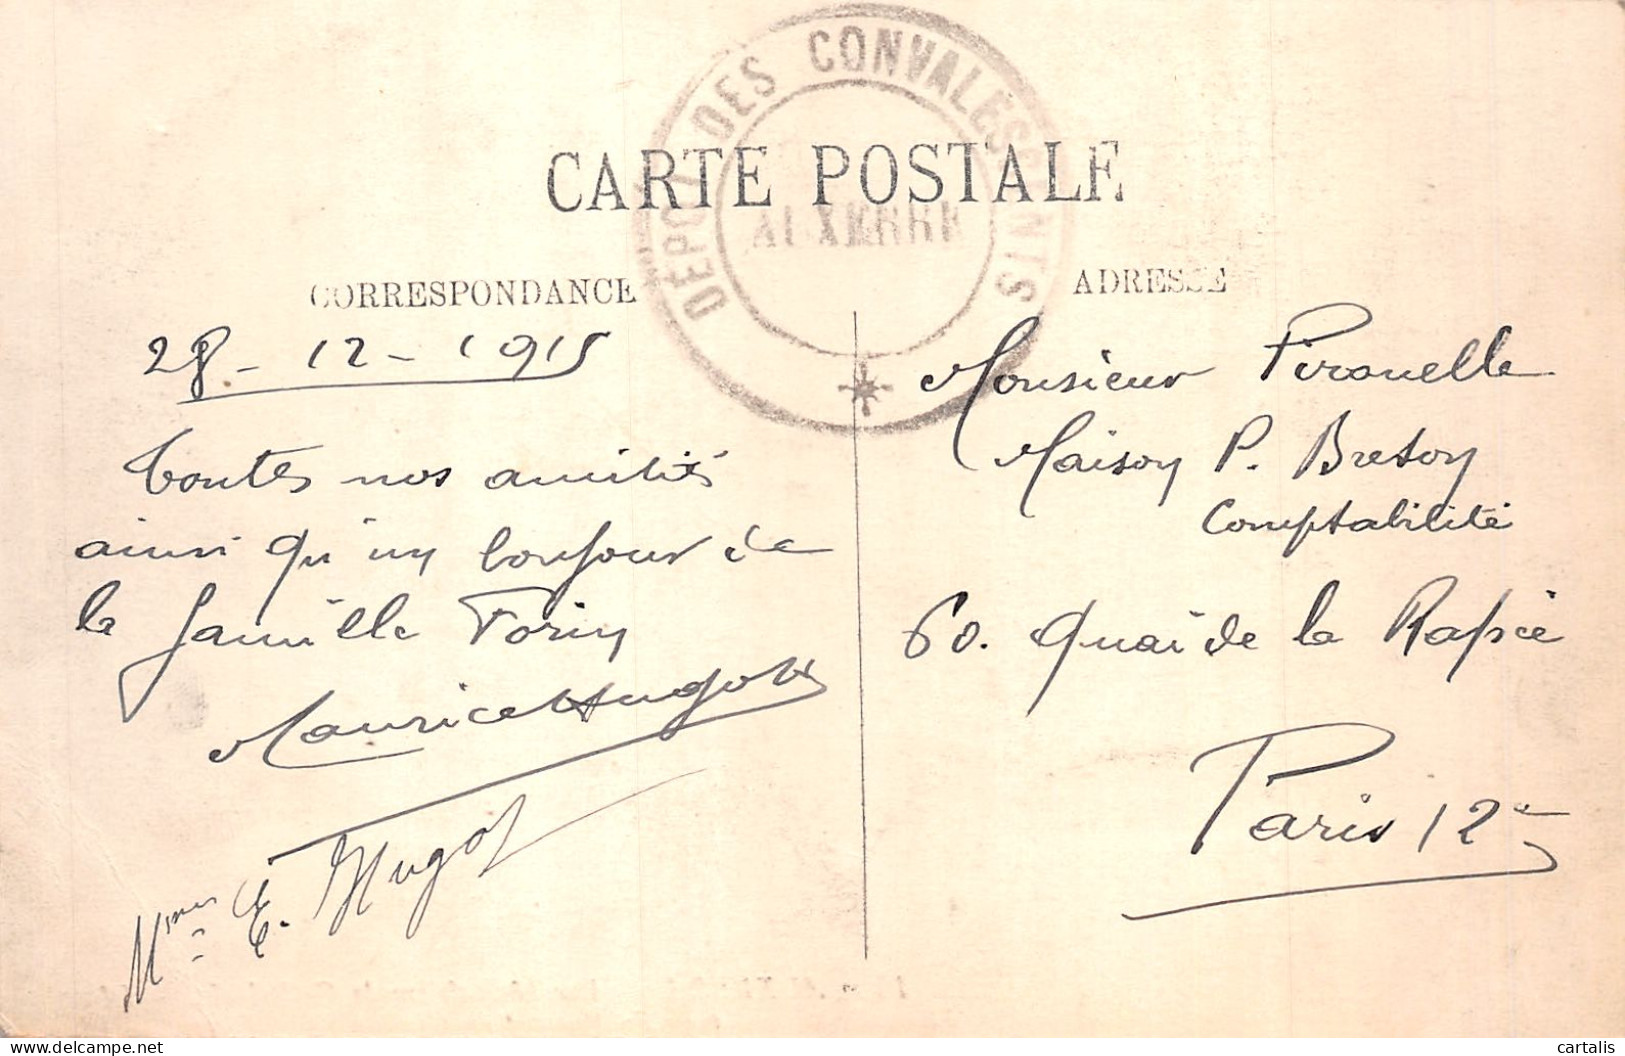 DÉPOT DES CONVALESCENTS
AUXERRE
CARTE POSTALE
CORRESPONDANCE
28 - 12 - 1915
Toutes nos amitiés
ainsi qu'un bonjour de
la famille Forin
Maurice Hugot
Mme E. Hugot
ADRESSE
Monsieur Pirouelle
Maison P. Breton
Comptabilité
60. Quai de la Rapée
Paris 12e
www.delcampe.net
cartalis